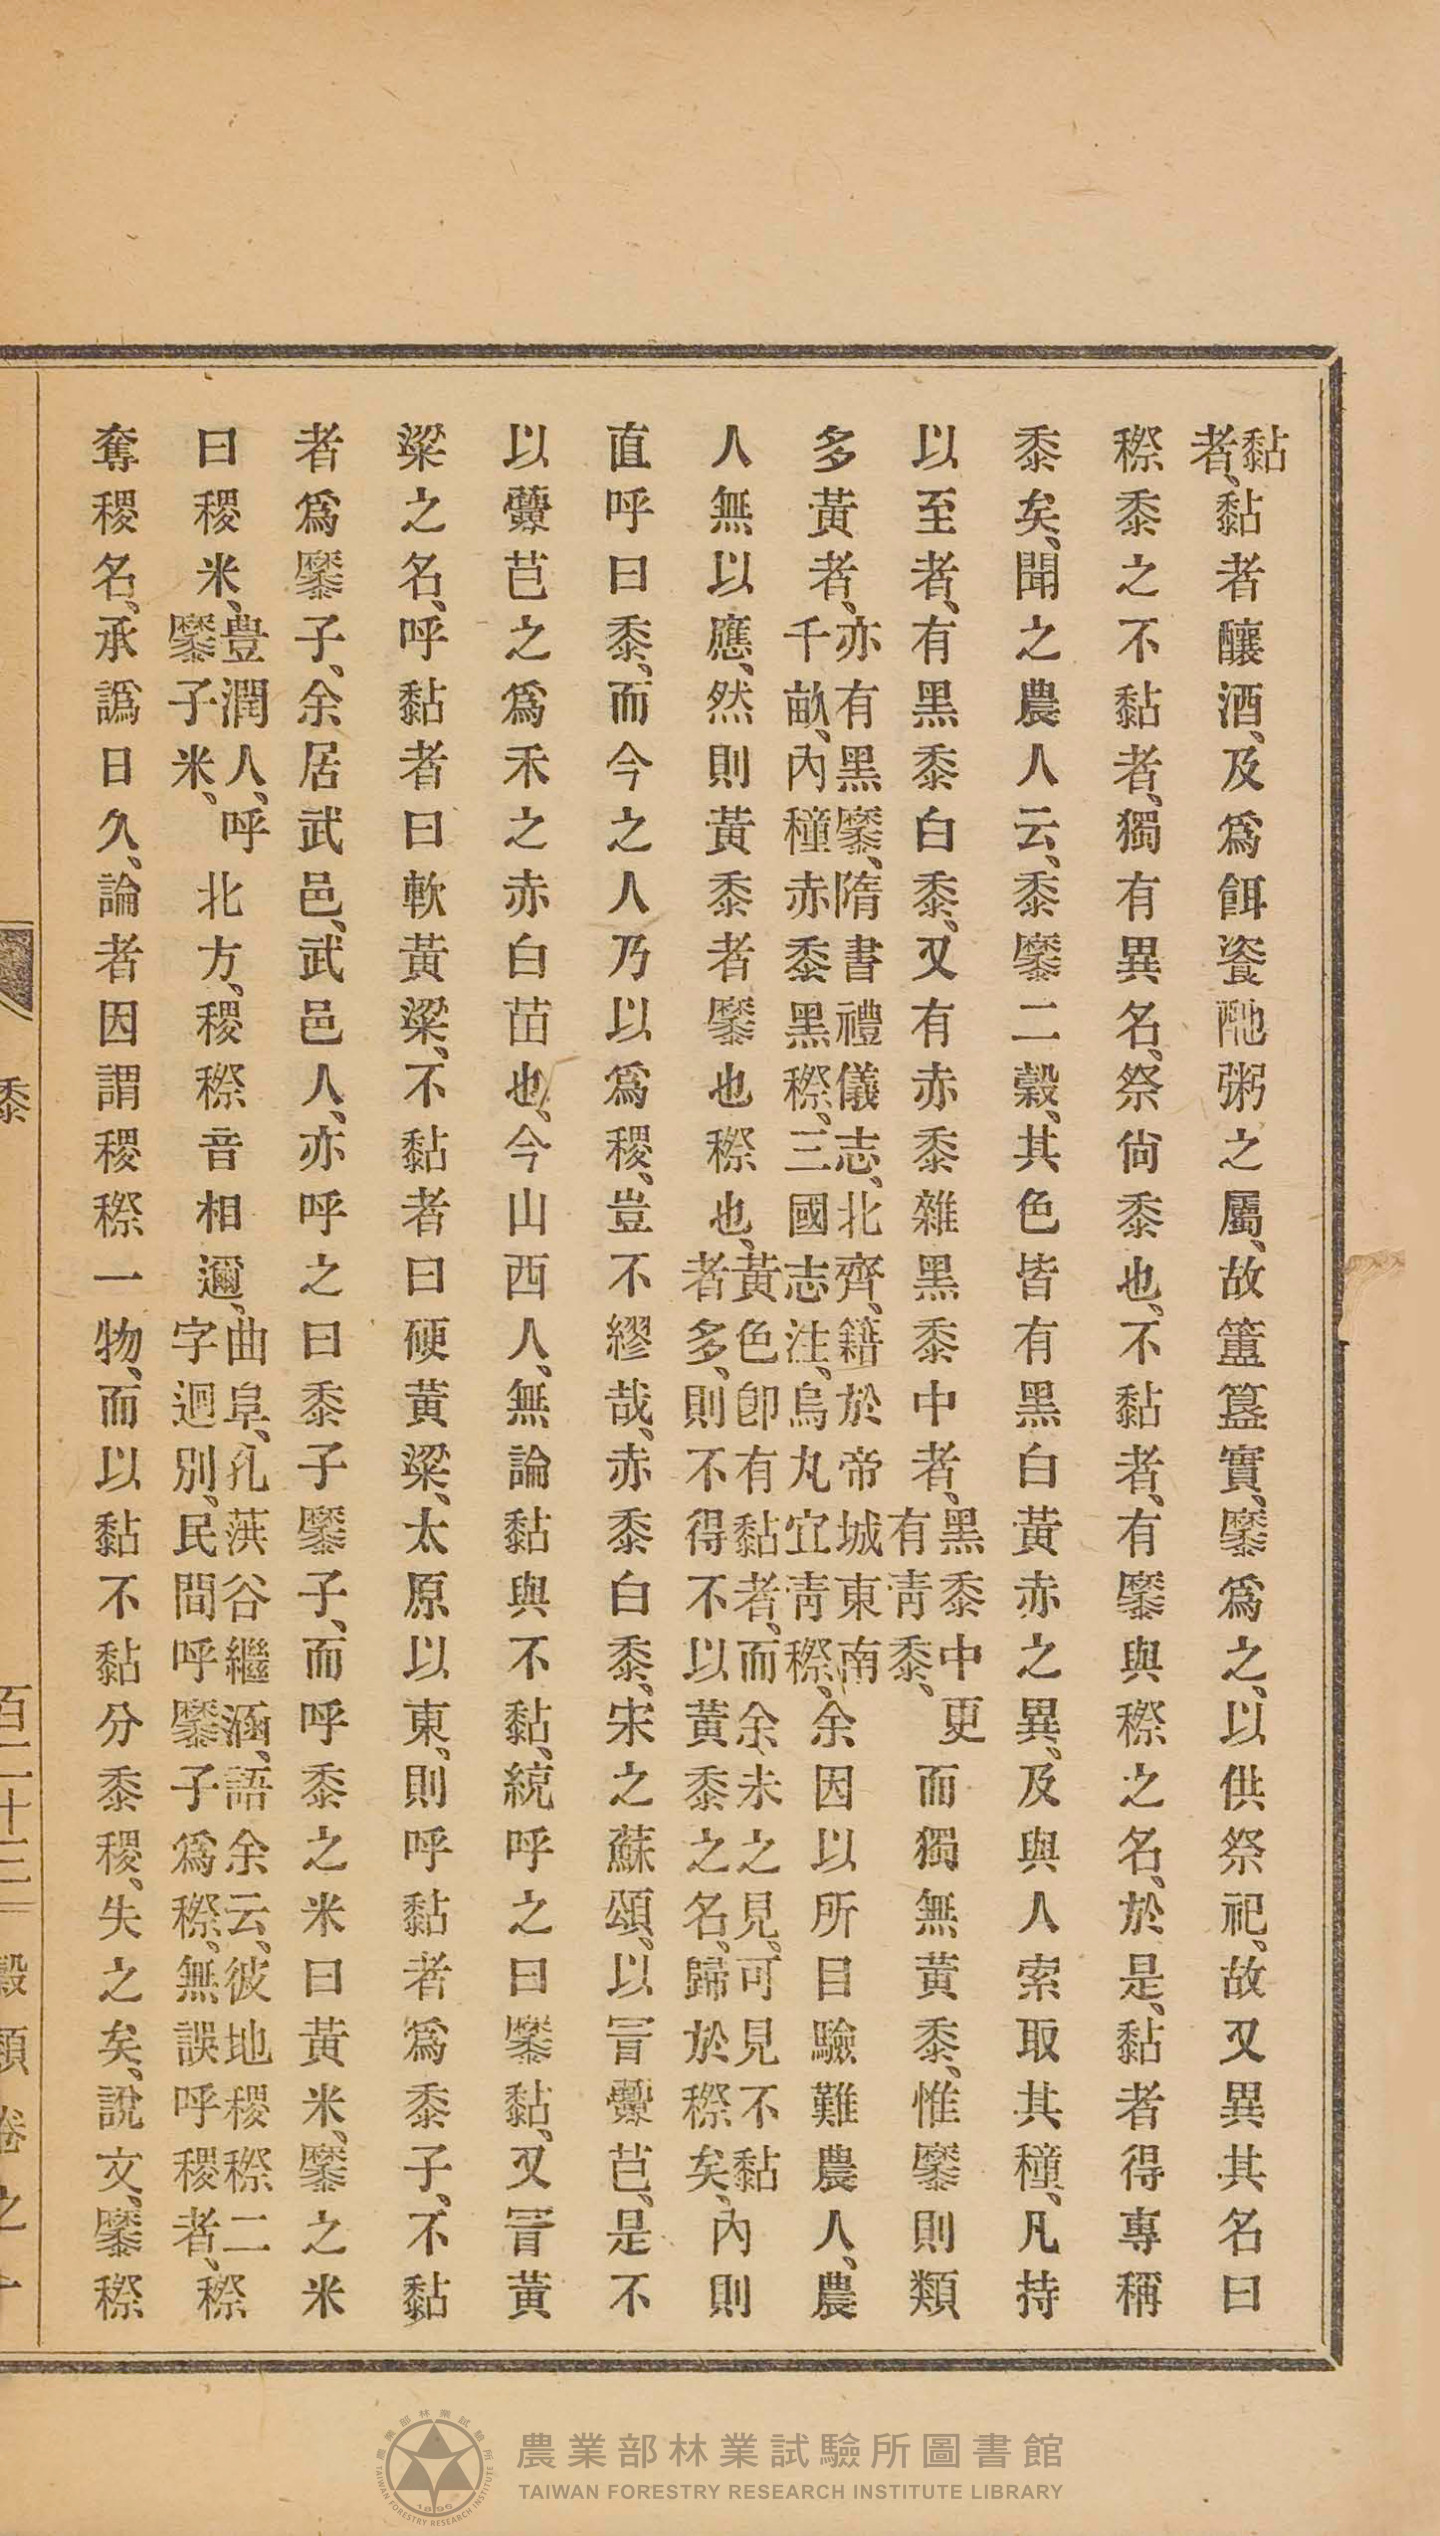 黏者、黏者釀酒、及爲餌餈酏粥之屬、故簠簋實、穈爲之、以供祭祀、故又異其名曰
穄黍之不黏者、獨有異名、祭尙黍也、不黏者、有穈與穄之名、於是、黏者得專稱
黍矣、聞之農人云、黍穈二穀、其色皆有黑白黃赤之異、及與人索取其穜、凡持
以至者、有黑黍白黍、又有赤黍雜黑黍中者、黑黍中更有靑黍、而獨無黃黍、惟穈則類
多黃者、亦有黑穈、隋書禮儀志、北齊、籍於帝城東南千畝、內穜赤黍黑穄、三國志注、烏丸宜靑穄、余因以所目驗難農人、農
人無以應、然則黃黍者穈也穄也、黃色卽有黏者、而余未之見、可見不黏者多、則不得不以黃黍之名、歸於穄矣、內則
直呼曰黍、而今之人乃以爲稷、豈不繆哉、赤黍白黍、宋之蘇頌、以冒虋芑、是不
以虋芑之爲禾之赤白苗也、今山西人、無論黏與不黏、統呼之曰穈黏、又冒黃
粱之名、呼黏者曰軟黃粱、不黏者曰硬黃粱、太原以東、則呼黏者爲黍子、不黏
者爲穈子、余居武邑、武邑人、亦呼之曰黍子穈子、而呼黍之米曰黃米、穈之米
曰稷米、豊潤人、呼穈子米、北方、稷穄音相邇、曲阜、孔葓谷繼涵、語余云、彼地稷穄二字迴別、民間呼穈子爲穄、無誤呼稷者、穄
奪稷名、承譌日久、論者因謂稷穄一物、而以黏不黏分黍稷、失之矣、說文、穈穄
黍　百二十三　穀類卷之
農業部林業試驗所圖書館
TAIWAN FORESTRY RESEARCH INSTITUTE LIBRARY
農業部林業試驗所
TAIWAN FORESTRY RESEARCH INSTITUTE
1896